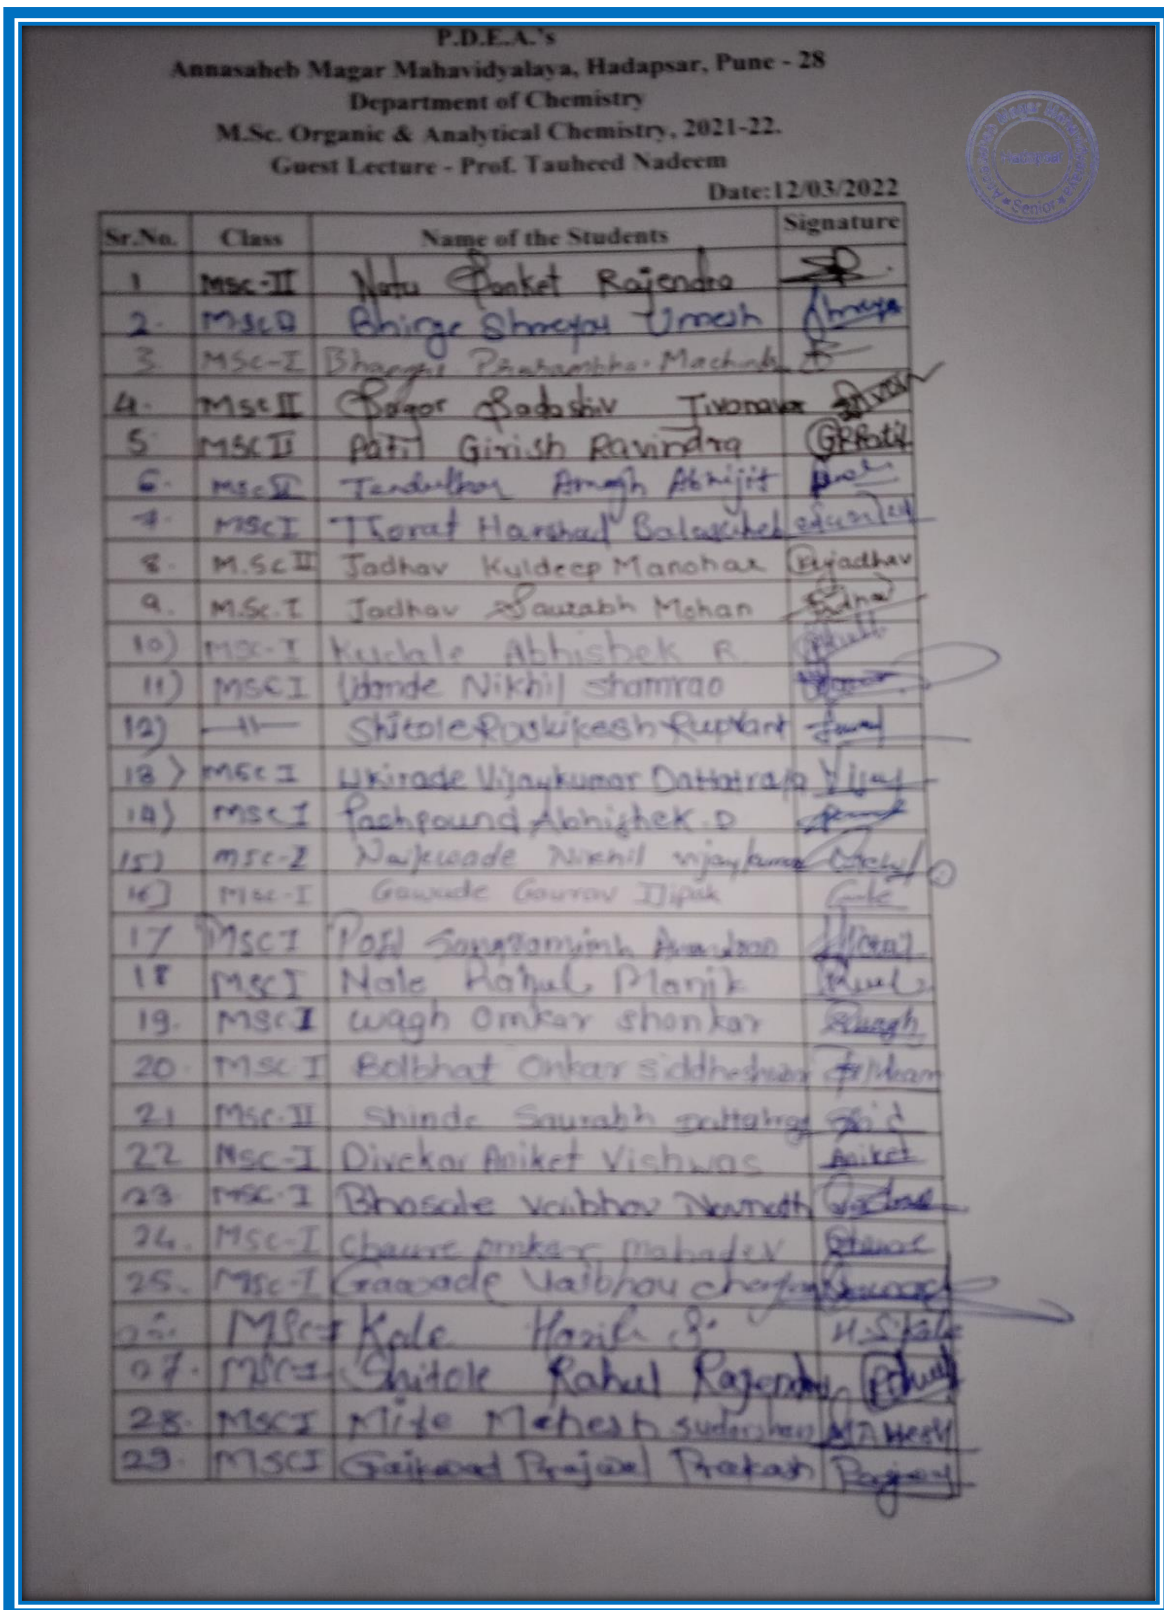 P.D.E.A.'s
Annasaheb Magar Mahavidyalaya, Hadapsar, Pune - 28
Department of Chemistry
M.Sc. Organic & Analytical Chemistry, 2021-22.
Guest Lecture - Prof. Tauheed Nadeem
Date:12/03/2022
Sr.No. Class Name of the Students Signature
1 MSC-II Natu Sanket Rajendra
2. Bhirge Shreyas Umesh Shreyas
3. MSC-I
4. MSC II Sagar Sadashiv
5 MSC II Patil Girish Ravindra GRPatil
6. MSC II Amogh Abhijit
7. MSC I Thorat Harshad Balasaheb
8. M.SC II Jadhav Kuldeep Manohar
9. M.Sc. I Jadhav Saurabh Mohan
10) MSC-I Kudale Abhishek R.
11) MSC I Nikhil Shamrao
12) —11— Shitole
13) MSC I Ukirade Vijaykumar Dattatraya Vijay
14) MSC I Pachpound Abhishek.D
15) MSC-I Naikwade Nikhil Vijaykumar
16] MSC-I Gawade Gourav Dipak
17 MSC I Patil
18 MSC I Nale Rahul Manik
19. MSC I Wagh Omkar Shankar
20. MSC I Bolbhat Onkar Siddheshwar
21 MSC-II Shinde Saurabh
22 MSC-I Divekar Aniket Vishwas Aniket
23. MSC-I Bhosale Vaibhav Navnath
24. MSC-I Chaure Omkar Mahadev
25. MSC-I Gawade Vaibhav
26. MSC-I Kale H.S.Kale
27. MSC-I Shitole Rahul Rajendra
28. MSC I Mite Mahesh Sudarshan Mahesh
29. MSC I Gaikwad Prajwal Prakash
Hadapsar
Senior